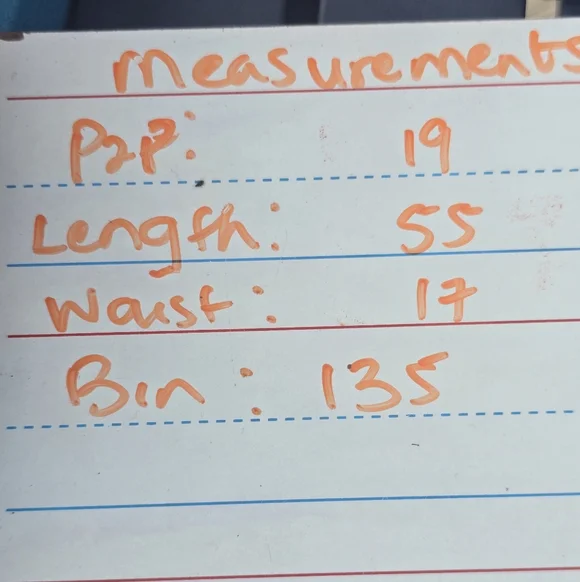 measurements
P2P: 19
Length: 55
Waist: 17
Bin: 135